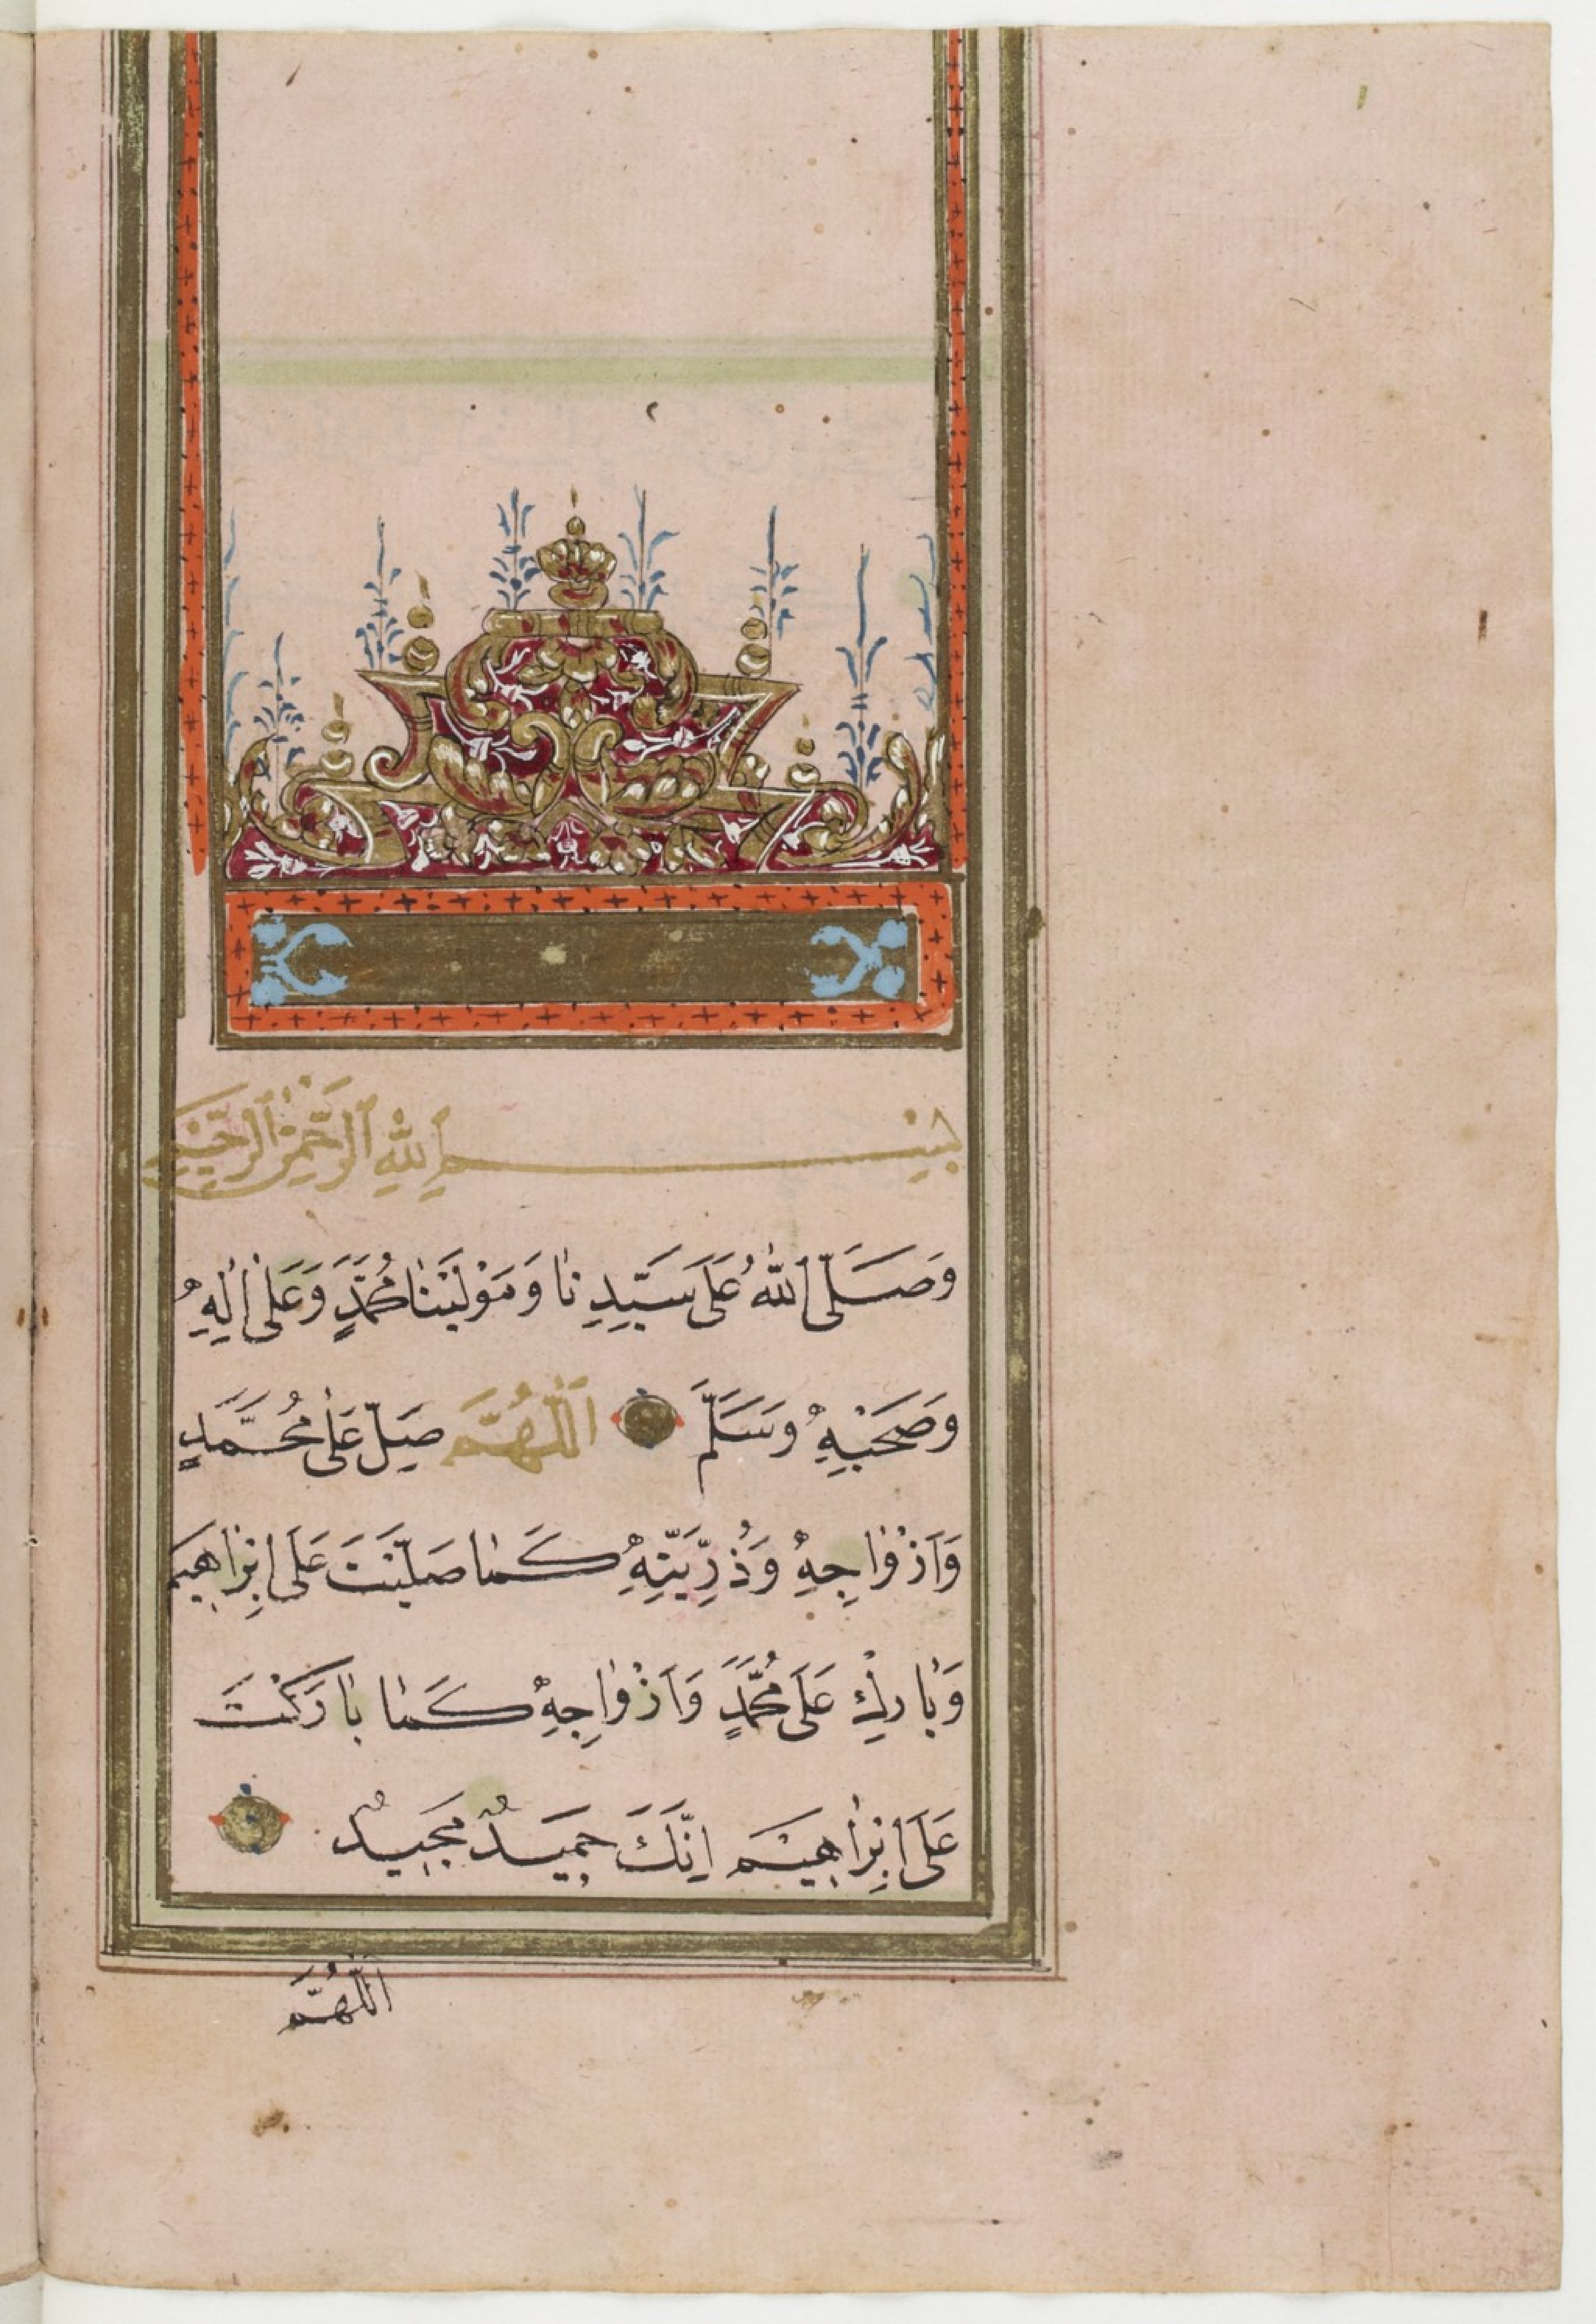 بِسْمِ ٱللّٰهِ ٱلرَّحْمٰنِ ٱلرَّحِيْمِ
وَصَلَّى ٱللّٰهُ عَلَى سَيِّدِنَا وَمَوْلَيْنَا مُحَمَّدٍ وَعَلٰى اٰلِهِ
وَصَحْبِهِ وَسَلَّمَ اَللّٰهُمَّ صَلِّ عَلٰى مُحَمَّدٍ
وَاَزْوَاجِهِ وَذُرِّيَّتِهِ كَمَا صَلَّيْتَ عَلَى اِبْرَاهِيمَ
وَبَارِكْ عَلَى مُحَمَّدٍ وَاَزْوَاجِهِ كَمَا بَارَكْتَ
عَلَى اِبْرَاهِيْمَ اِنَّكَ حَمِيدٌ مَجِيدٌ
اَللّٰهُمَّ